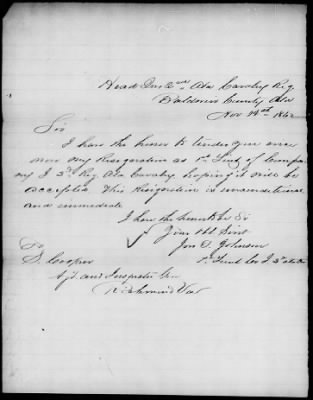 Head Qurs 2nd Ala Cavalry Reg
Baldwin County Ala
Nov 22nd 1862
Sir
I have the honor to tender you once
more my Resignation as 1st Lieut of Compa
ny I 2d Reg Ala Cavalry hoping it will be
accepted This Resignation is unconditional
and immediate
I have the honor to be Sir
Your Obt Servt
Jno D. Johnson
1st Lieut Co I
To
S. Cooper
Ajt and Inspector Gen
Richmond Va